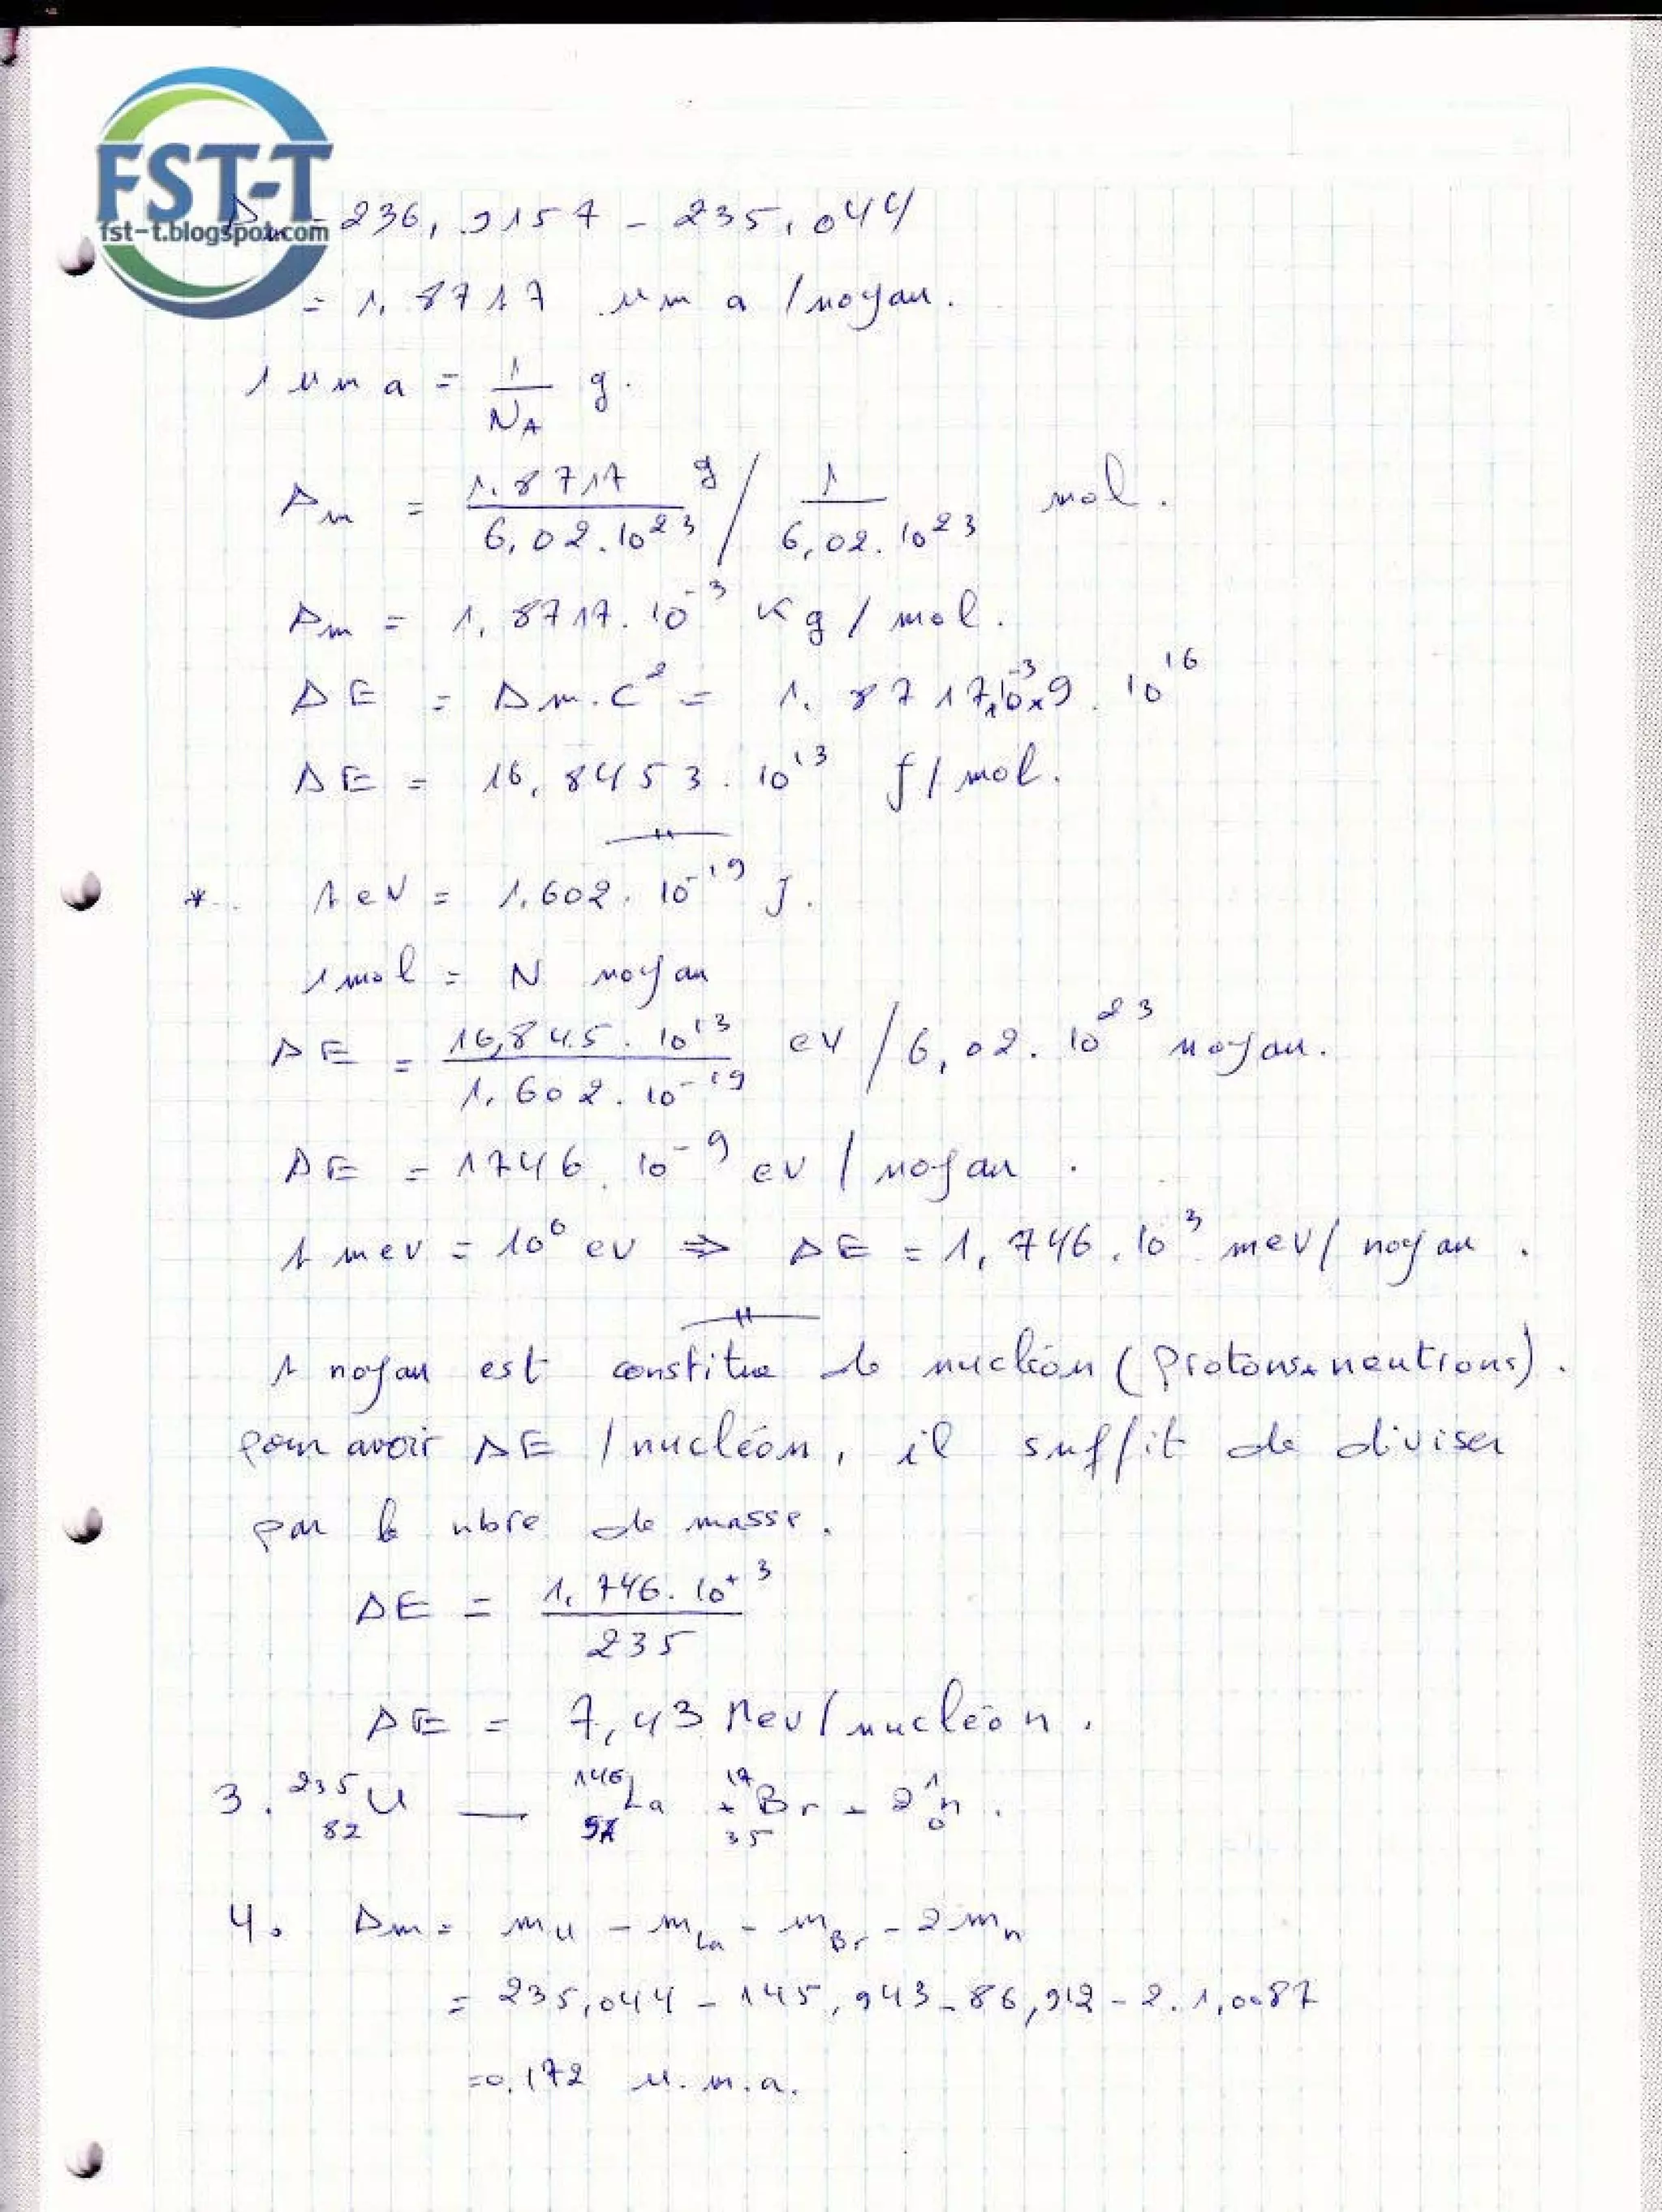 FST-T
fst-t.blogspot.com
= 236, 9157 - 235, 044
= 1, 8717 uma / noyau.
1 uma = 1/N_A g.
Δm = 1,8717/6,02.10^23 g / 1/6,02.10^23 mol.
Δm = 1, 8717.10^-3 Kg / mol.
ΔE = Δm.C² = 1, 8717.10^-3 x 9. 10^16
ΔE = 16, 8453. 10^13 J / mol.
* 1 eV = 1,602. 10^-19 J.
1 mol = N noyau
ΔE = 16,845. 10^13/1,602. 10^-19 eV / 6,02. 10^23 noyau.
ΔE = 1746. 10^-9 ev / noyau.
1 mev = 10^6 ev ⇒ ΔE = 1, 746. 10^3 mev / noyau.
1 noyau est constitue de nucléon (protons + neutrons).
pour avoir ΔE / nucléon, il suffit de diviser
par le nbre de masse.
ΔE = 1,746. 10^+3/235
ΔE = 7,43 Mev / nucléon.
3. ^235_82 U — ^146_57 La + ^17_35 Br + 2 ^1_0 n.
4. Δm = m_U - m_La - m_Br - 2 m_n
= 235,044 - 145,943 - 86,912 - 2. 1,0087
= 0,172 u.m.a.